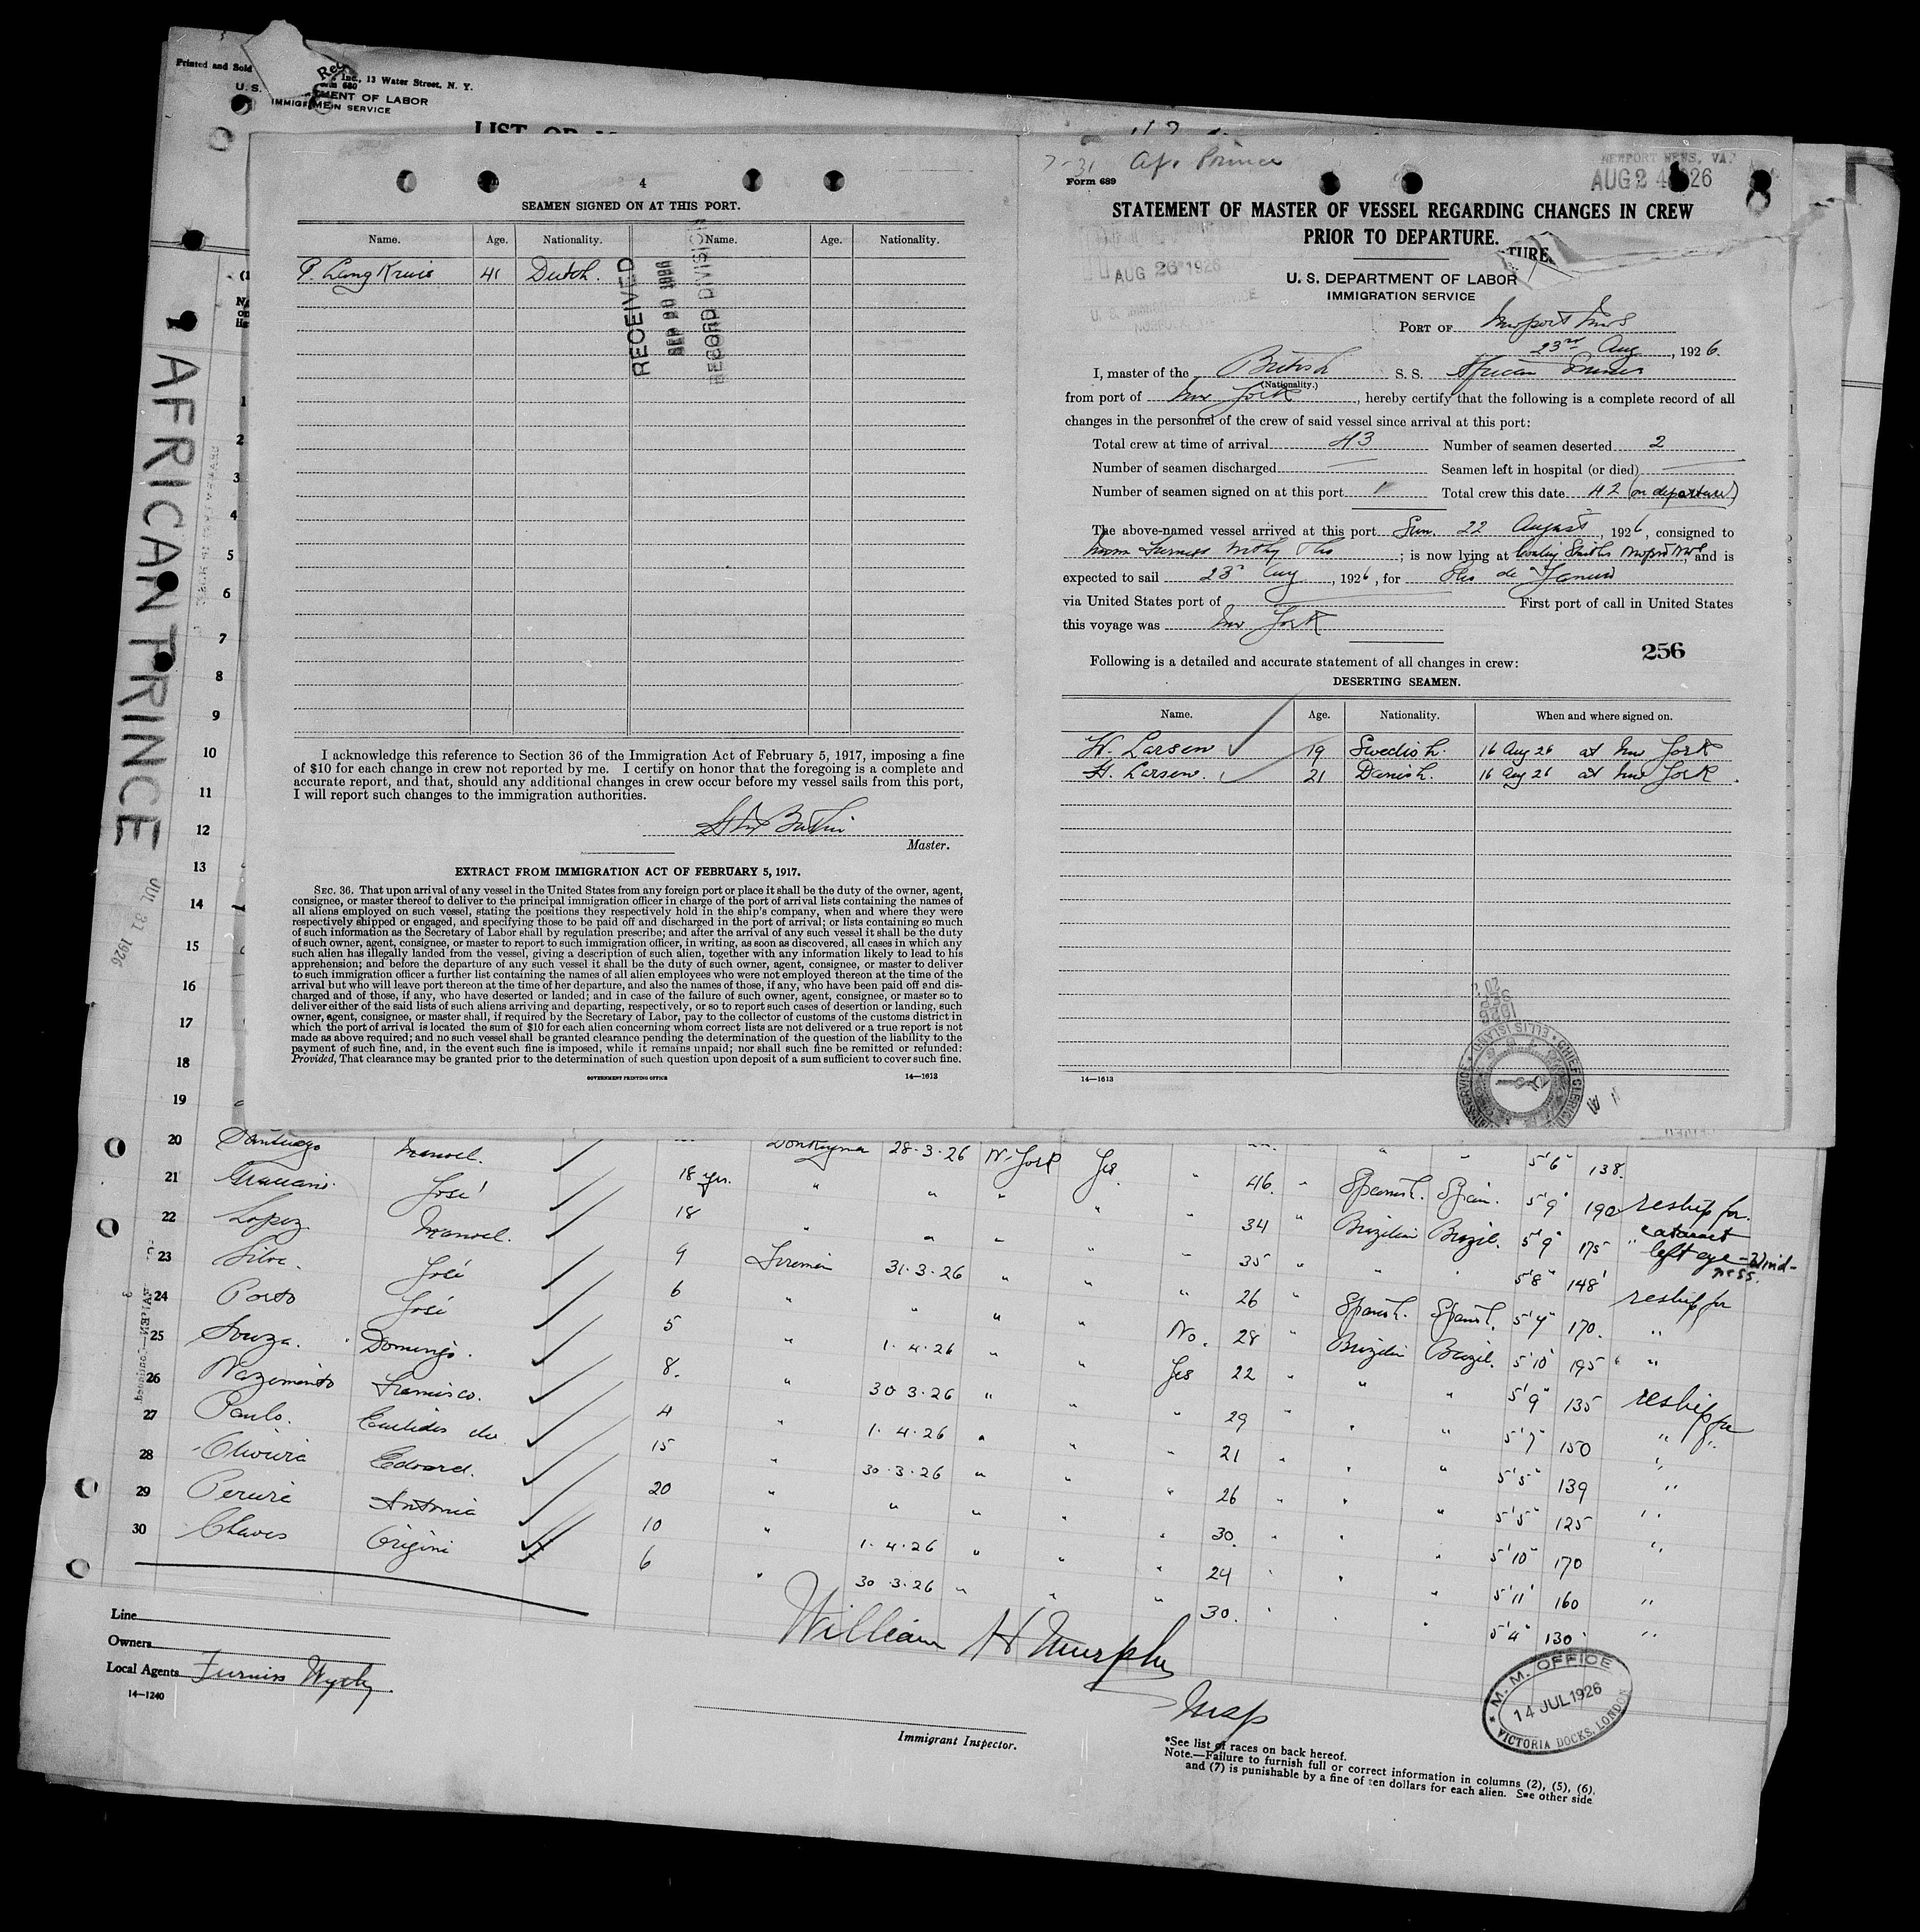 Printed and Sold
Inc., 13 Water Street, N. Y.
U. S.
MENT OF LABOR
IMMIG
SERVICE
AFRICAN PRINCE
JUL 31 1926
4
SEAMEN SIGNED ON AT THIS PORT.
Name. Age. Nationality. Name. Age. Nationality.
P. Lang Kruis 41 Dutch.
RECEIVED
RECORD DIVISION
I acknowledge this reference to Section 36 of the Immigration Act of February 5, 1917, imposing a fine
of $10 for each change in crew not reported by me. I certify on honor that the foregoing is a complete and
accurate report, and that, should any additional changes in crew occur before my vessel sails from this port,
I will report such changes to the immigration authorities.
Master.
EXTRACT FROM IMMIGRATION ACT OF FEBRUARY 5, 1917.
SEC. 36. That upon arrival of any vessel in the United States from any foreign port or place it shall be the duty of the owner, agent,
consignee, or master thereof to deliver to the principal immigration officer in charge of the port of arrival lists containing the names of
all aliens employed on such vessel, stating the positions they respectively hold in the ship's company, when and where they were
respectively shipped or engaged, and specifying those to be paid off and discharged in the port of arrival; or lists containing so much
of such information as the Secretary of Labor shall by regulation prescribe; and after the arrival of any such vessel it shall be the duty
of such owner, agent, consignee, or master to report to such immigration officer, in writing, as soon as discovered, all cases in which any
such alien has illegally landed from the vessel, giving a description of such alien, together with any information likely to lead to his
apprehension; and before the departure of any such vessel it shall be the duty of such owner, agent, consignee, or master to deliver
to such immigration officer a further list containing the names of all alien employees who were not employed thereon at the time of the
arrival but who will leave port thereon at the time of her departure, and also the names of those, if any, who have been paid off and dis-
charged and of those, if any, who have deserted or landed; and in case of the failure of such owner, agent, consignee, or master so to
deliver either of the said lists of such aliens arriving and departing, respectively, or so to report such cases of desertion or landing, such
owner, agent, consignee, or master shall, if required by the Secretary of Labor, pay to the collector of customs of the customs district in
which the port of arrival is located the sum of $10 for each alien concerning whom correct lists are not delivered or a true report is not
made as above required; and no such vessel shall be granted clearance pending the determination of the question of the liability to the
payment of such fine, and, in the event such fine is imposed, while it remains unpaid; nor shall such fine be remitted or refunded:
Provided, That clearance may be granted prior to the determination of such question upon deposit of a sum sufficient to cover such fine.
GOVERNMENT PRINTING OFFICE 14—1613
7-31 Afr Prince
NEWPORT NEWS, VA.
AUG 24 1926
Form 689
STATEMENT OF MASTER OF VESSEL REGARDING CHANGES IN CREW
PRIOR TO DEPARTURE.
TURE.
AUG 26 1926
U. S. DEPARTMENT OF LABOR
IMMIGRATION SERVICE
PORT OF Newport News
23rd Aug, 1926.
I, master of the British S. S. African Prince
(Nationality.)
from port of New York, hereby certify that the following is a complete record of all
changes in the personnel of the crew of said vessel since arrival at this port:
Total crew at time of arrival 43 Number of seamen deserted 2
Number of seamen discharged — Seamen left in hospital (or died) —
Number of seamen signed on at this port 1 Total crew this date 42 (on departure)
The above-named vessel arrived at this port Sun. 22 August, 1926, consigned to
Furness Withy; is now lying at Newport News, and is
expected to sail 23rd Aug, 1926, for Rio de Janeiro
via United States port of First port of call in United States
this voyage was New York
256
Following is a detailed and accurate statement of all changes in crew:
DESERTING SEAMEN.
Name. Age. Nationality. When and where signed on.
W. Larsen 19 Swedish. 16 Aug 26 at New York
H. Larsen. 21 Danish. 16 Aug 26 at New York
14—1613
1
2
3
4
5
6
7
8
9
10
11
12
13
14
15
16
17
18
19
20 Santiago Manoel. Donkeyman 28·3·26 N. York Yes 5'6" 138
21 Graciano. José 18 yrs. " " " " " 46. " Spanish. Spain. 5'9" 190 reship for.
22 Lopez. Manoel. 18 " " " " " 34 " Brazilian Brazil. 5'9" 175 " cataract left eye - blindness.
23 Silva. José 9 Fireman 31·3·26 " " " 35 " " " 5'8" 148 reship for
24 Porto José 6 " " " " " 26 " Spanish. Spanish. 5'9" 170. "
25 Souza. Domingo. 5 " 1·4·26 " " No. 28 " Brazilian Brazil. 5'10" 195 "
26 Nazemento Francisco. 8. " 30·3·26 " " Yes 22 " " " 5'9" 135 reship for
27 Paulo. Euclides da 4 " 1·4·26 " " " 29 " " " 5'7" 150 " "
28 Oliviera Edward. 15 " 30·3·26 " " " 21 " " " 5'5" 139 "
29 Periure Antonio 20 " " " " " 26 " " " 5'5" 125 "
30 Chaves Origini 10 " 1·4·26 " " " 30. " " " 5'10" 170 "
6 " 30·3·26 " " " 24 " " " 5'11" 160 "
30. " " 5'4" 130 "
William H Murphy
Insp
Line
Owners
Local Agents Furniss Wythy.
14—1240
Immigrant Inspector.
M. M. OFFICE
14 JUL 1926
VICTORIA DOCKS, LONDON
*See list of races on back hereof.
Note.—Failure to furnish full or correct information in columns (2), (5), (6),
and (7) is punishable by a fine of ten dollars for each alien. See other side